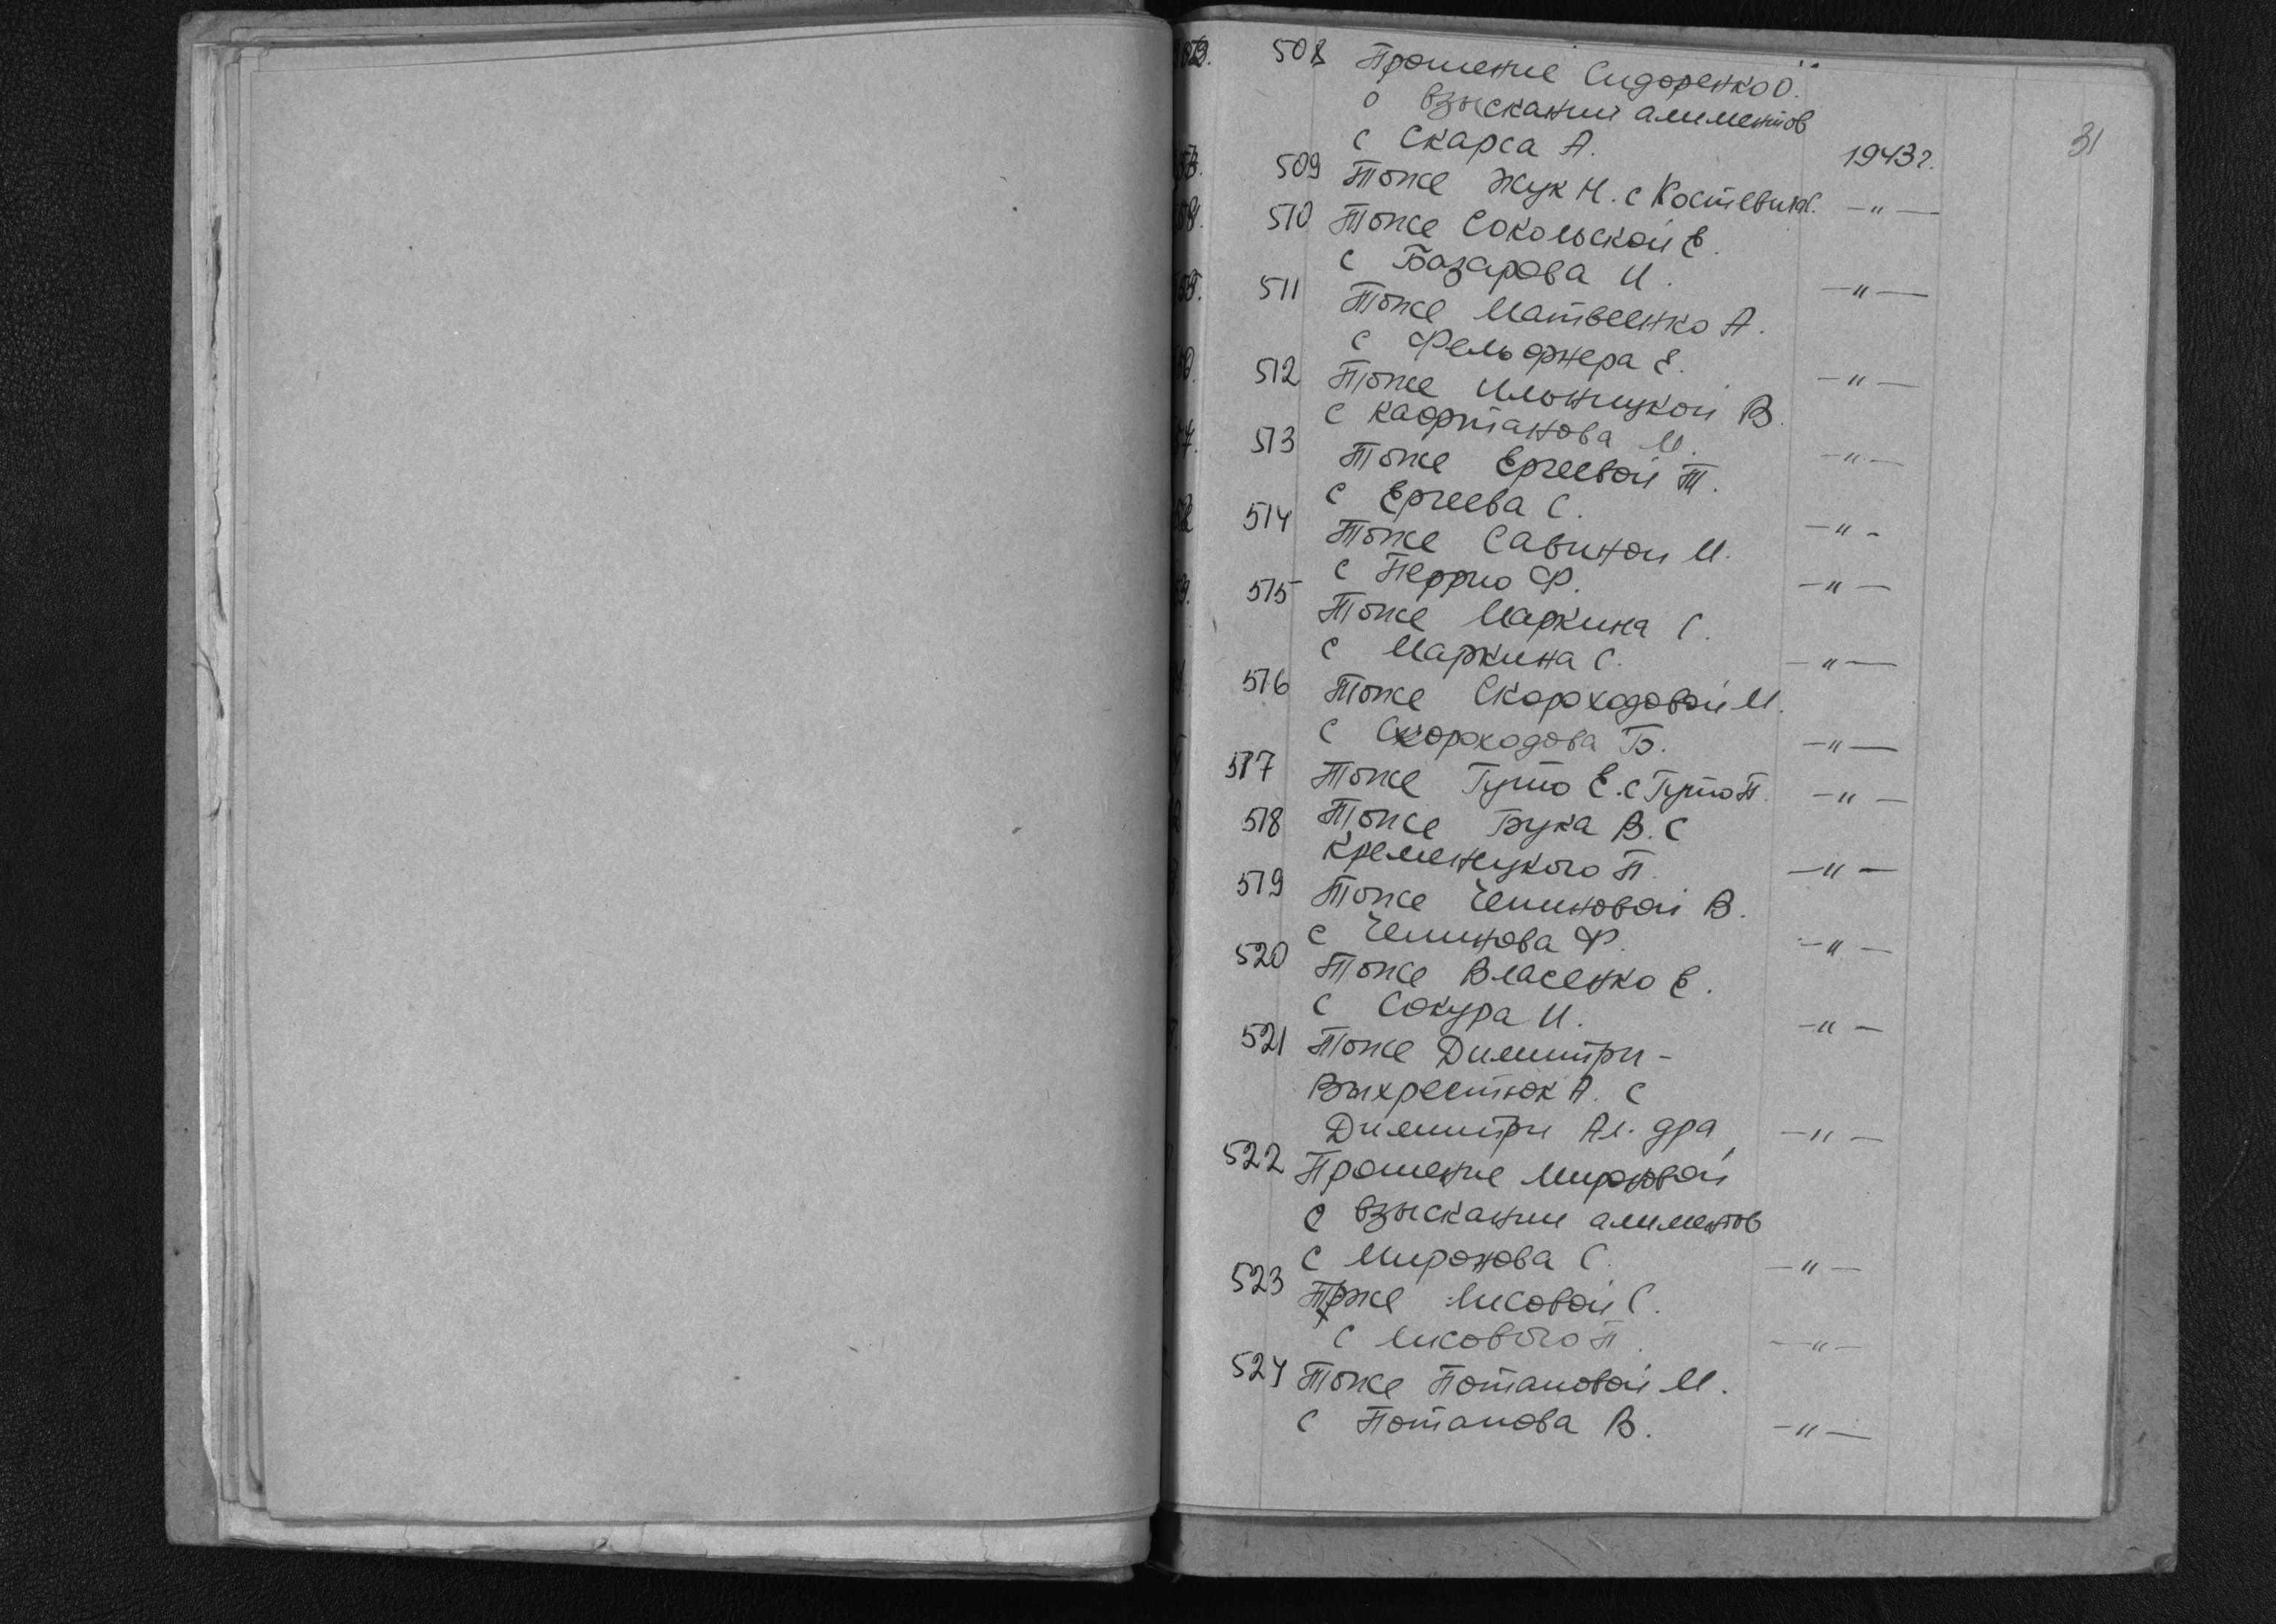 31
508 Прошение Сидоренко О.
о взыскании алиментов
с Скарса А. 1943г.
509 Тоже Жук Н. с Костевич -"-
510 Тоже Сокольской Е.
с Базарова И. -"-
511 Тоже Матвеенко А.
с Фельофнера Е. -"-
512 Тоже Ильницкой В.
с Кафтанова М. -"-
513 Тоже Ергеевой Т.
с Ергеева С. -"-
514 Тоже Савиной М.
с Перрио Ф. -"-
515 Тоже Маркина С.
с Маркина С. -"-
516 Тоже Скороходовой М.
с Скороходова Б. -"-
517 Тоже Гутю Е. с Гутю П. -"-
518 Тоже Бука В. с
Кременецкого П. -"-
519 Тоже Чеминовой В.
с Чеминова Ф. -"-
520 Тоже Власенко Е.
с Сокура И. -"-
521 Тоже Димитри-
Выхрестюк А. с
Димитри Ал-дра -"-
522 Прошение Мироновой
о взыскании алиментов
с Миронова С. -"-
523 Тоже Лисовой С.
с Лисового П. -"-
524 Тоже Потаповой М.
с Потапова В. -"-